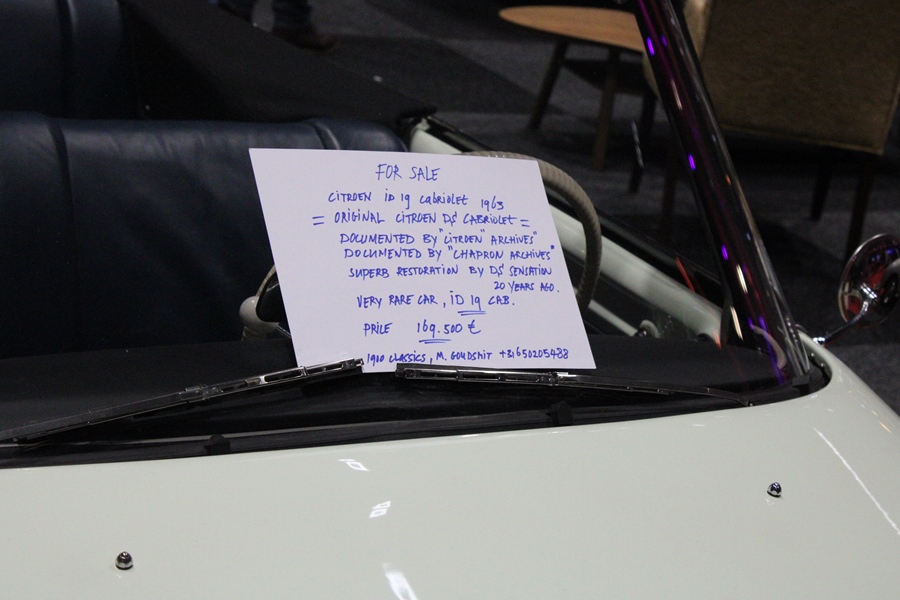 FOR SALE
CITROEN iD 19 CABRIOLET 1963
= ORIGINAL CITROEN DS' CABRIOLET =
DOCUMENTED BY "CITROEN" ARCHIVES"
DOCUMENTED BY "CHAPRON ARCHIVES"
SUPERB RESTORATION BY DS' SENSATION
20 YEARS AGO.
VERY RARE CAR, iD 19 CAB.
PRICE 169.500 €
1900 CLASSICS, M. +31650205438